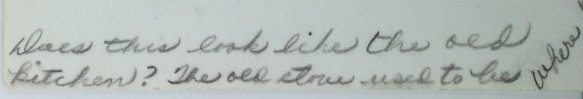 Does this look like the old
kitchen? The old stove used to be
where